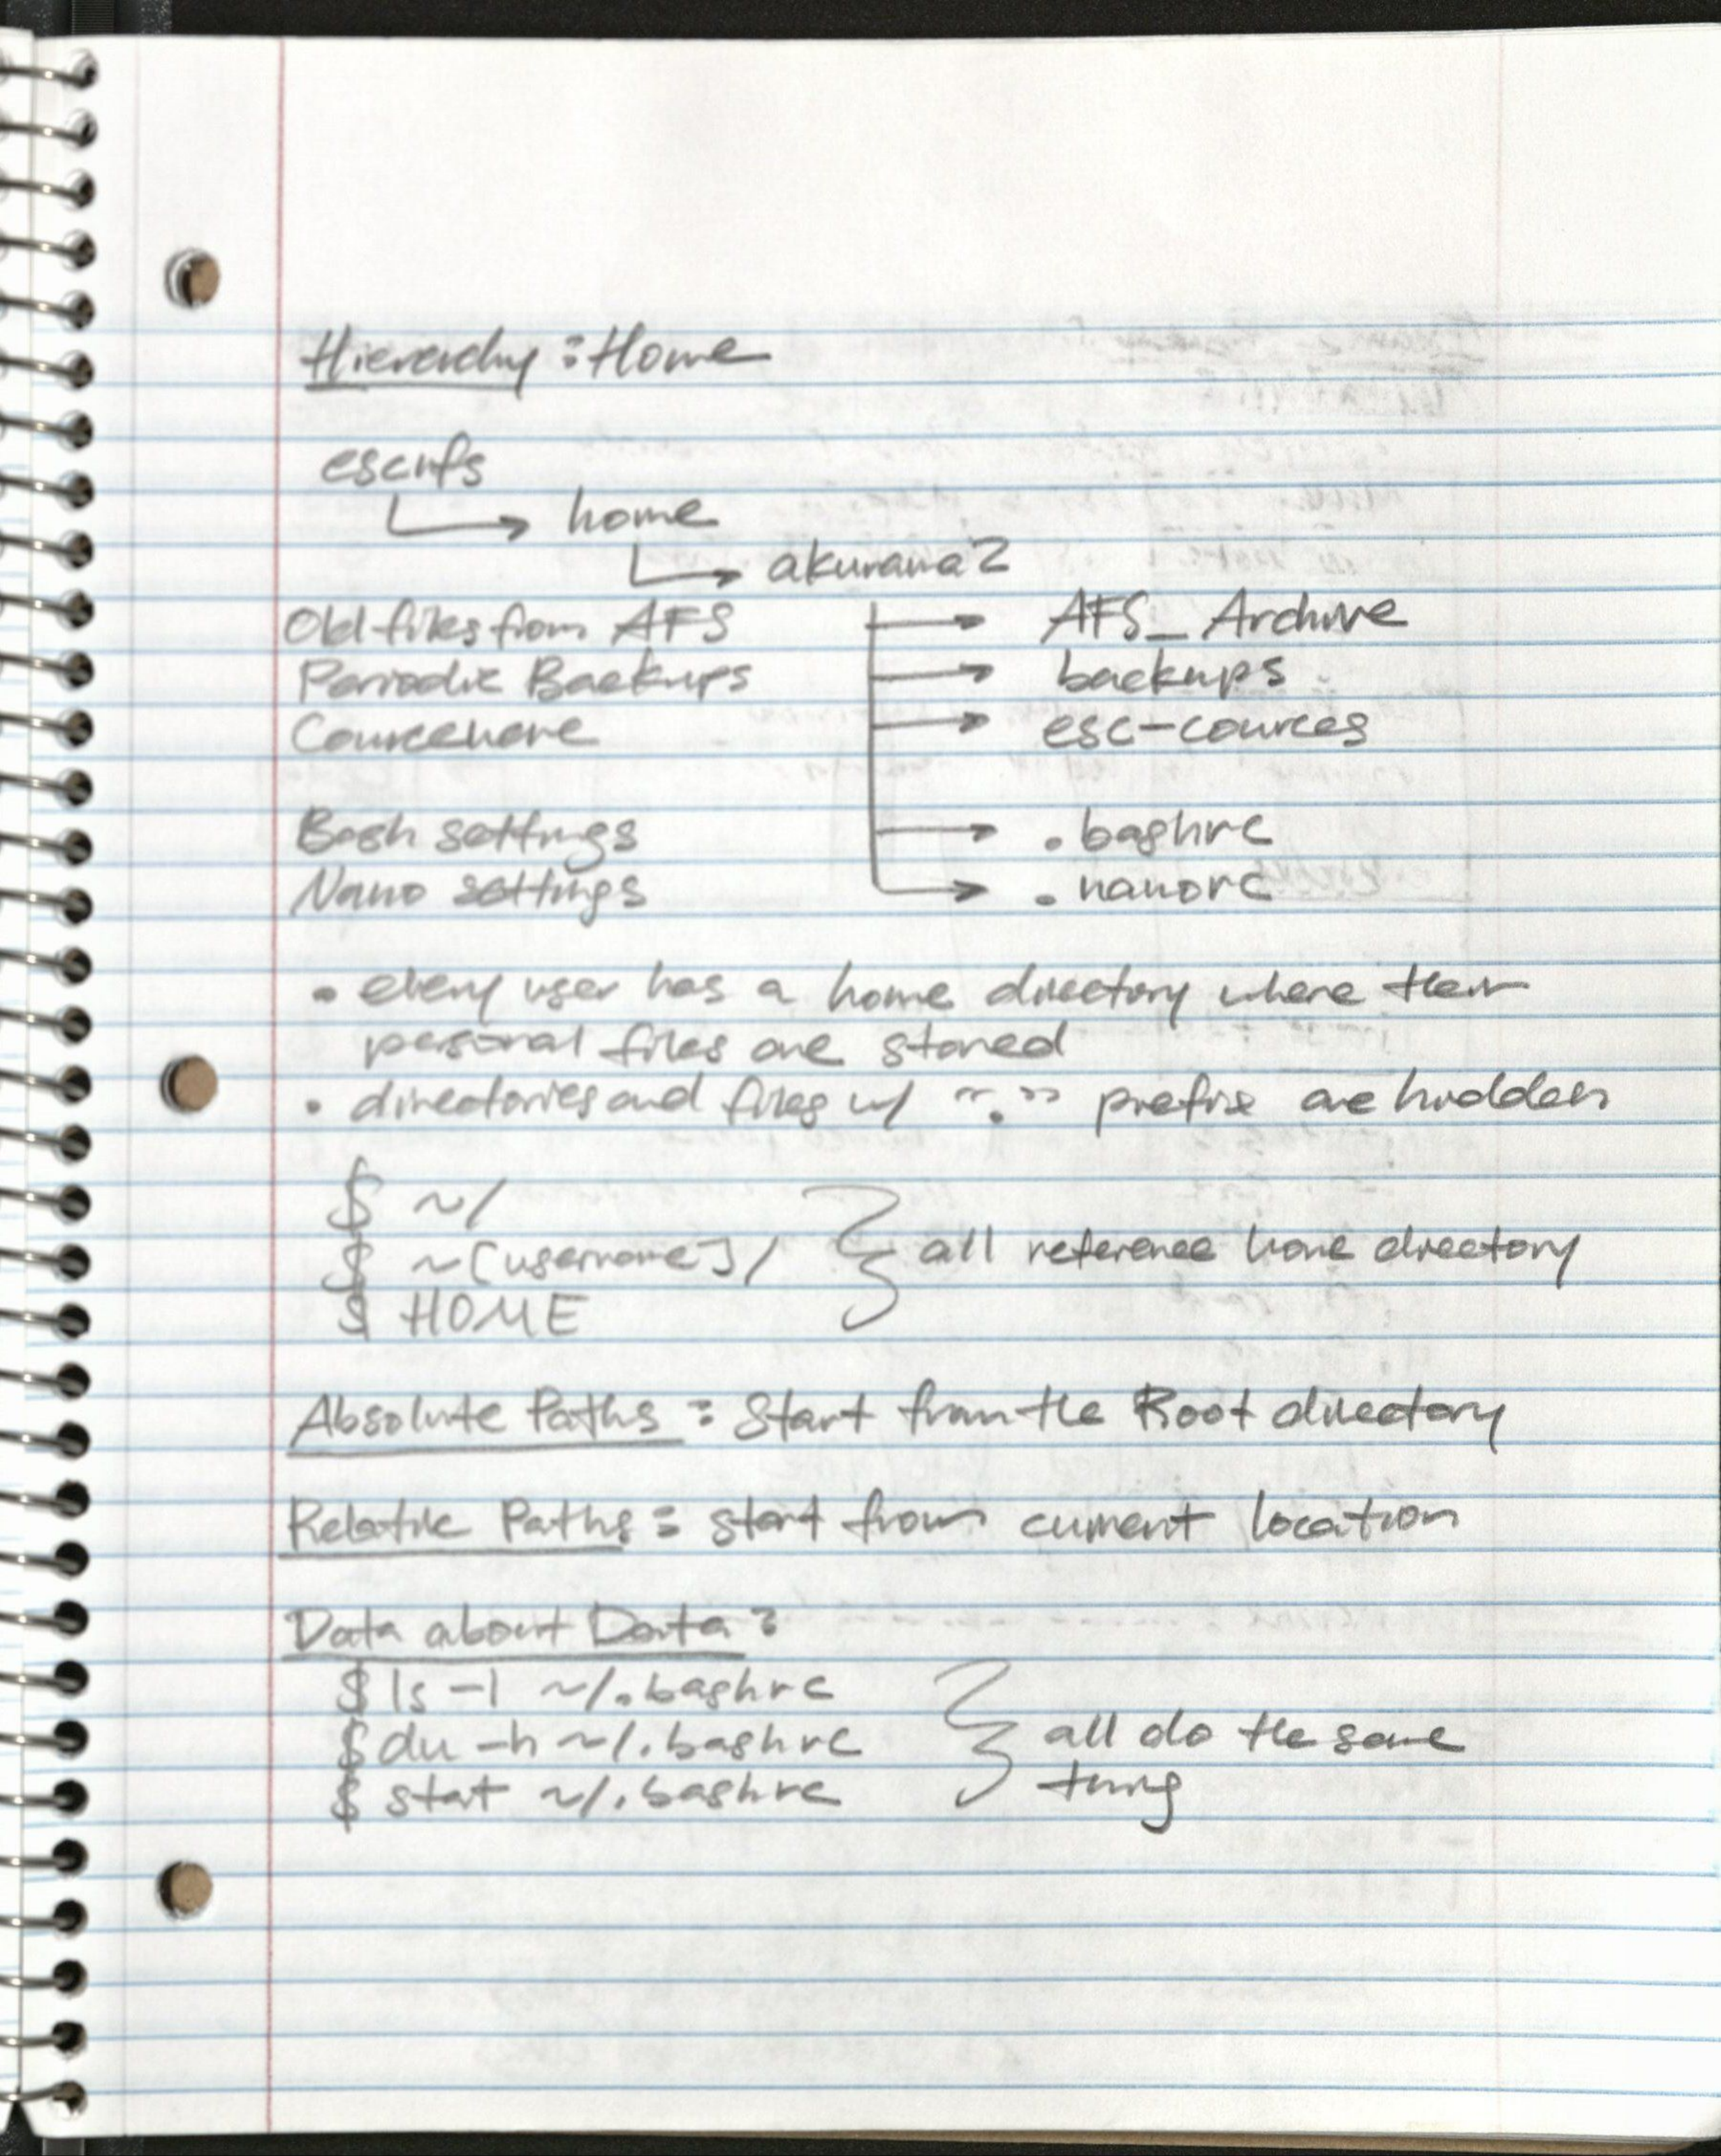 Hierarchy : Home
escnfs
home
akurama2
Old files from AFS AFS_Archive
Periodic Backups backups
Courseware esc-cources
Bash settings .bashrc
Nano settings .nanorc
• every user has a home directory where their
personal files are stored
• directories and files w/ "." prefix are hidden
$ ~/
$ ~[username]/ all reference home directory
$ HOME
Absolute Paths : Start from the Root directory
Relative Paths : start from current location
Data about Data :
$ ls -l ~/.bashrc
$ du -h ~/.bashrc all do the same
$ stat ~/.bashrc thing